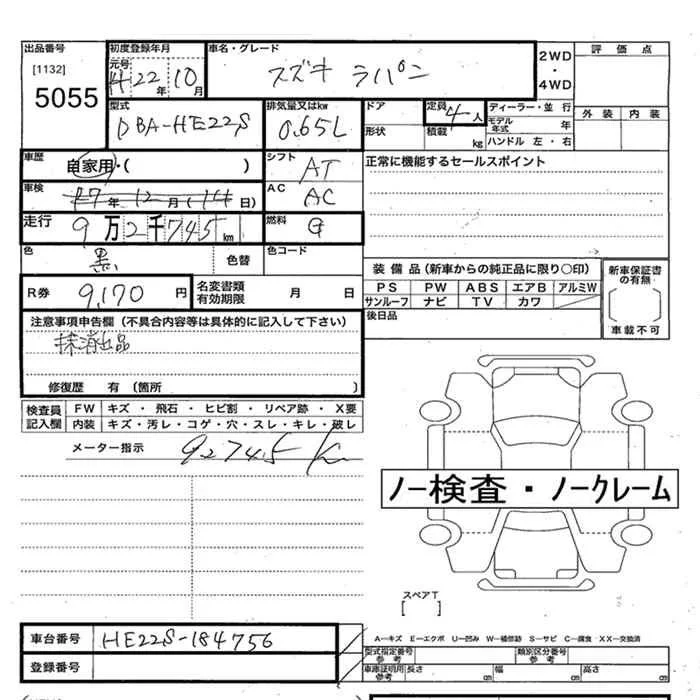 出品番号 初度登録年月 車名・グレード 2WD・4WD 評価点
[1132] 元号 H22年10月 スズキ ラパン
5055
型式 DBA-HE22S 排気量又はkw 0.65L ドア 形状 定員 4人 積載 kg ディーラー・並行 モデル年式 年 ハンドル 左・右 外装 内装
車歴 自家用・( ) シフト AT 正常に機能するセールスポイント
車検 年12月(14日) AC AC
走行 9万2千745km 燃料 G
色 黒 色替 色コード
装備品(新車からの純正品に限り〇印) 新車保証書の有無
R券 9,170円 名変書類有効期限 月 日 PS PW ABS エアB アルミW
サンルーフ ナビ TV カワ
〔 〕
車載不可
注意事項申告欄(不具合内容等は具体的に記入して下さい) 後日品
抹消出品
修復歴 有 〔箇所 〕
検査員記入欄 FW キズ・飛石・ヒビ割・リペア跡・X要
内装 キズ・汚レ・コゲ・穴・スレ・キレ・破レ
メーター指示 92745K
ノー検査・ノークレーム
スペアT
[ ]
車台番号 HE22S-184756 A―キズ E―エクボ U―凹み W―補修跡 S―サビ C―腐食 XX―交換済
登録番号 型式指定番号 参考 類別区分番号 参考
車庫証明用 参考 長さ ㎝ 幅 ㎝ 高さ ㎝